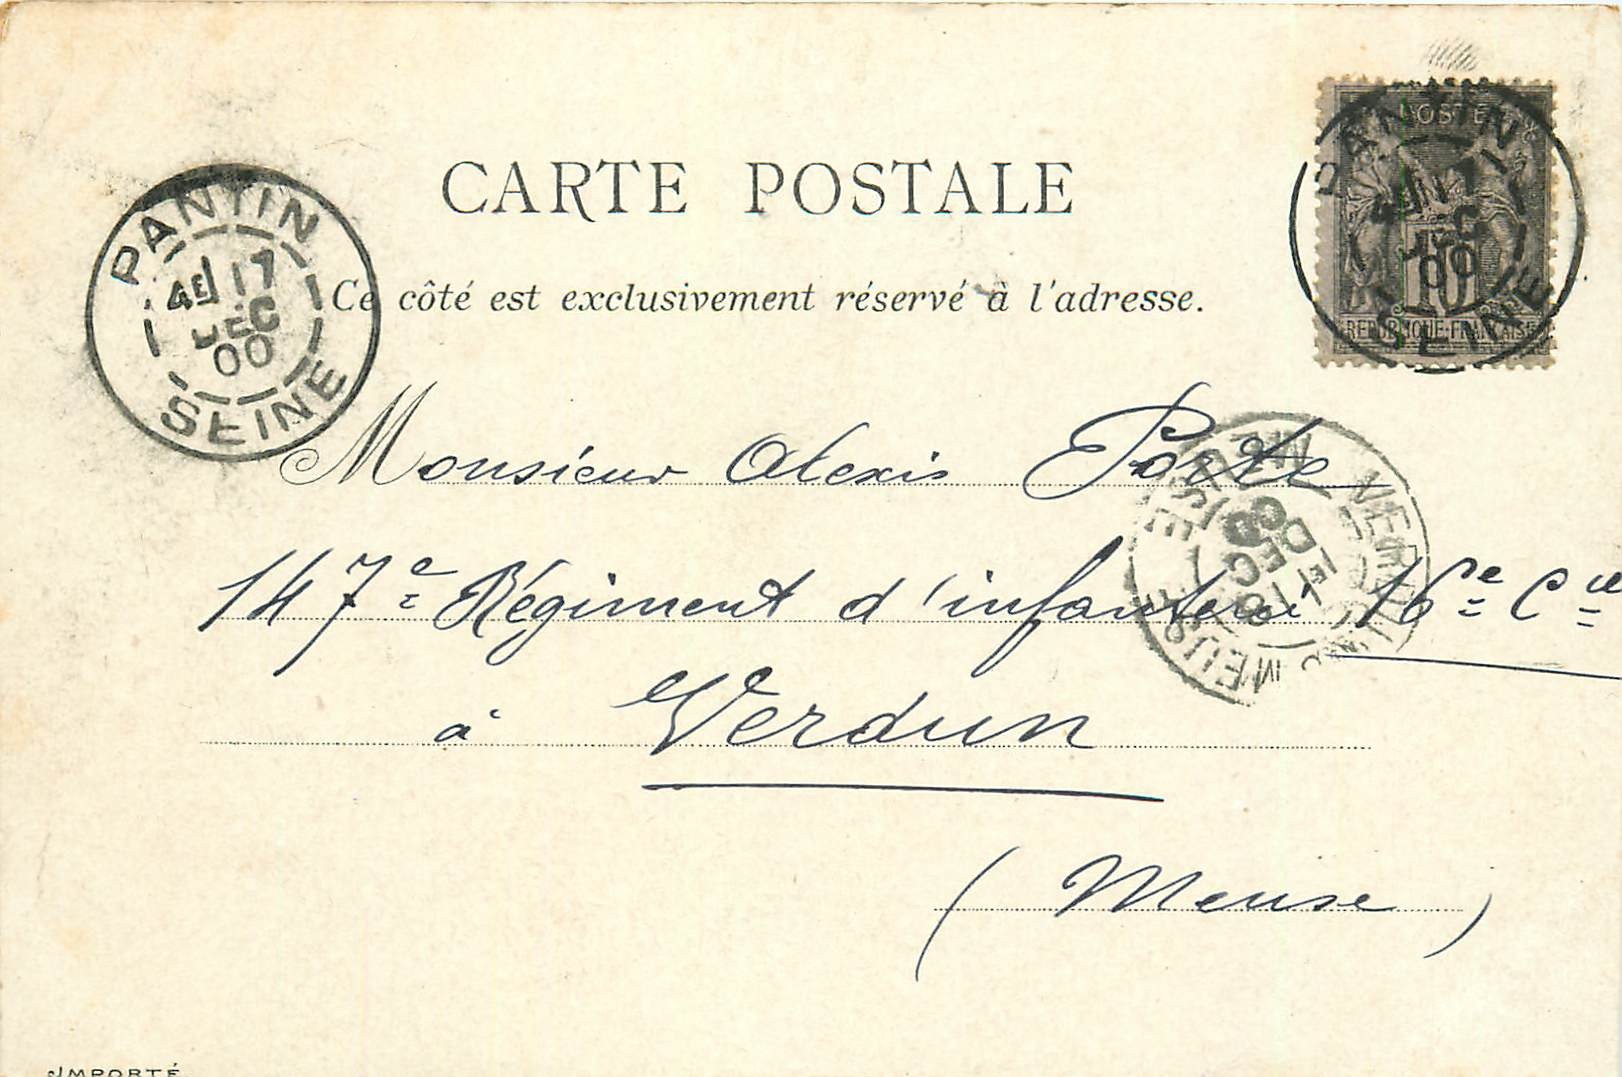 CARTE POSTALE
Ce côté est exclusivement réservé à l'adresse.
POSTE
10
REPUBLIQUE FRANÇAISE
PANTIN
4E 17
DEC
00
SEINE
PANTIN
4E 17
DEC
00
SEINE
Monsieur Alexis Porte
147e Régiment d'infanterie 16e Cie
à Verdun
(Meuse)
VERDUN
1E 18
DEC
00
MEUSE
IMPORTÉ